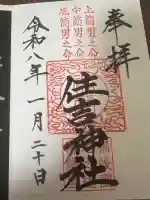 奉拝
上筒男之命
中筒男之命
底筒男之命
住吉神社
令和八年一月二十日